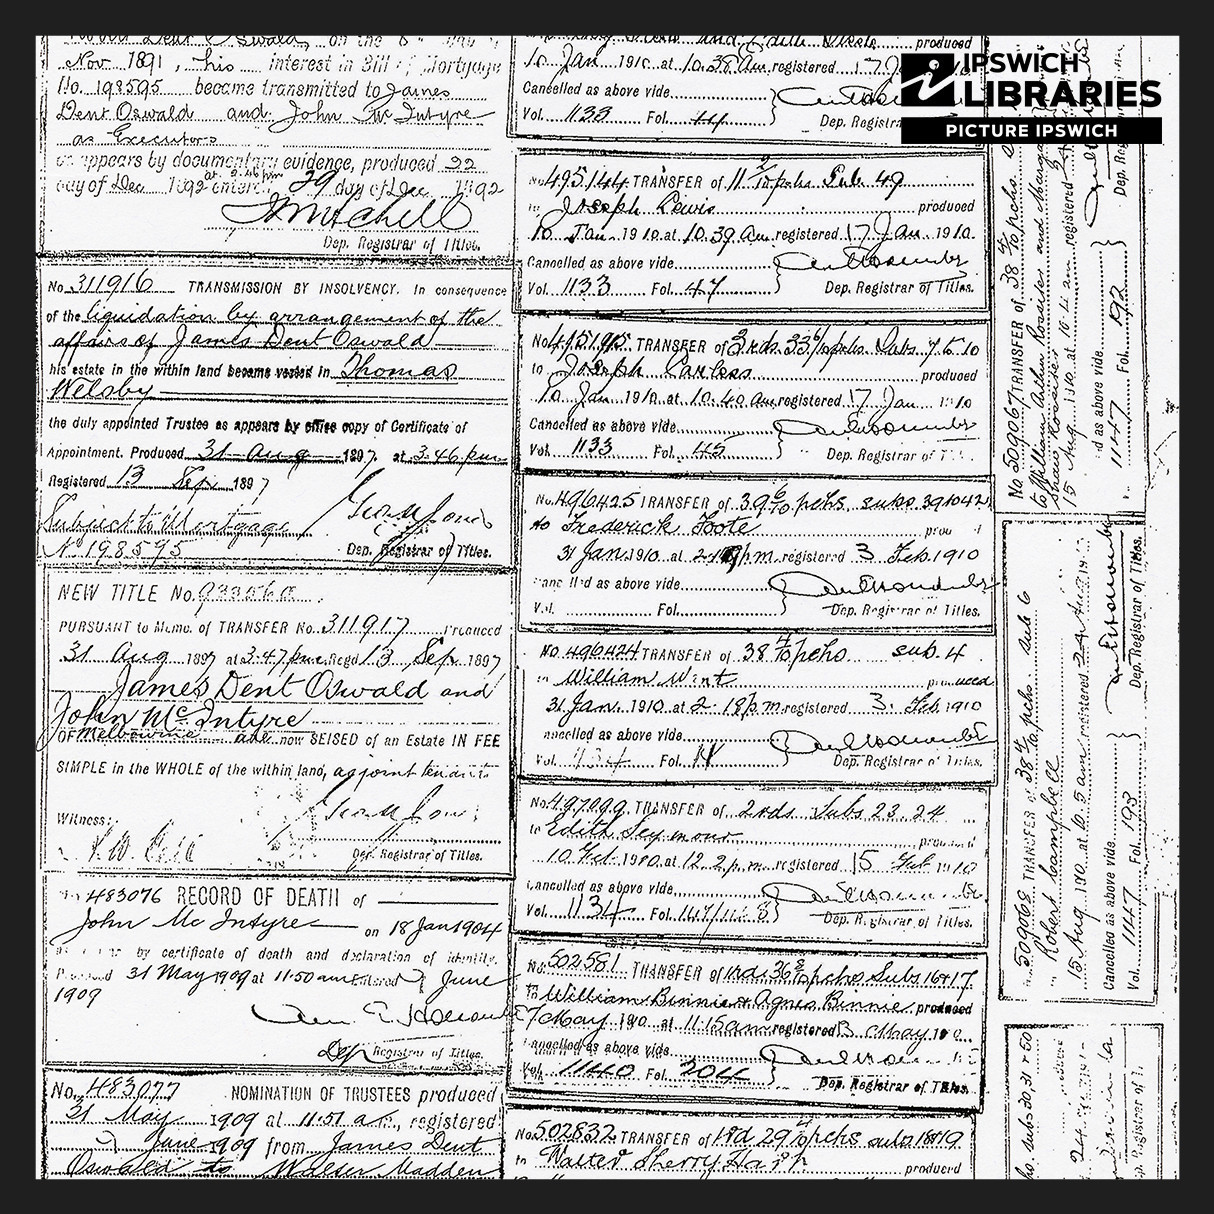 IPSWICH
LIBRARIES
PICTURE IPSWICH
Nov 1891, his interest in Bill of Mortgage
No. 198595 became transmitted to James
Dent Oswald and John McIntyre
as Executors
as appears by documentary evidence, produced 22
day of Dec 1892 at 2.46 pm entered 29 day of Dec 1892
Dep. Registrar of Titles.
No. 311916 TRANSMISSION BY INSOLVENCY. In consequence
of the liquidation by arrangement of the
affairs of James Dent Oswald
his estate in the within land became vested in Thomas
Welsby
the duly appointed Trustee as appears by office copy of Certificate of
Appointment. Produced 31 Aug 1897, at 3.46 pm
Registered 13 Sep 1897
Subject to Mortgage
No 198595
Dep. Registrar of Titles.
NEW TITLE No.
PURSUANT to Memo. of TRANSFER No. 311917 Produced
31 Aug 1897 at 3.47 pm Regd 13 Sep 1897
James Dent Oswald and
John McIntyre
OF Melbourne are now SEISED of an Estate IN FEE
SIMPLE in the WHOLE of the within land, as joint tenants
Witness:
Dep. Registrar of Titles.
483076 RECORD OF DEATH of
John McIntyre on 18 Jan 1904
by certificate of death and declaration of identity.
Produced 31 May 1909 at 11.50 am Entered 7 June
1909
Dep Registrar of Titles.
No. 483077 NOMINATION OF TRUSTEES produced
31 May 1909 at 11.57 am, registered
7 June 1909 from James Dent
Oswald to Walter Madden
produced
10 Jan 1910 at 10.38 am registered 17 J
Cancelled as above vide
Vol. 1133 Fol. 44 Dep. Registra
No. 495144 TRANSFER of 11 2/10 pchs Sub 49
to Joseph Lewis produced
10 Jan. 1910 at 10.39 am registered 17 Jan. 1910
Cancelled as above vide
Vol. 1133 Fol. 47 Dep. Registrar of Titles.
No. 495145 TRANSFER of 3 rds 33 6/10 pchs Subs 7 to 10
to Joseph Carless produced
10 Jan 1910 at 10.40 am registered 17 Jan 1910
Cancelled as above vide
Vol. 1133 Fol. 45 Dep. Registrar of T
No. 496425 TRANSFER of 39 6/10 pchs subs 39 to 42
to Frederick Foote
31 Jan 1910 at pm registered 3 Feb 1910
Cancelled as above vide
Vol. Fol. Dep. Registrar of Titles.
No. 496424 TRANSFER of 38 4/10 pchs sub. 4
to William Went produced
31 Jan. 1910 at 2.18 pm registered 3 Feb 1910
Cancelled as above vide
Vol. Fol. Dep. Registrar of Titles.
No. 497099 TRANSFER of 2 rds Subs 23.24
to Edith Seymour
10 Feb. 1910 at 12.2 p.m. registered 15 Feb 1910
Cancelled as above vide
Vol. 1134 Fol. Dep. Registrar of Titles.
No. 502581 TRANSFER of 1 rd 36 8/10 pchs Subs 16 + 17
to William Binnie & Agnes Binnie produced
7 May 1910 at 11.15 am registered 13 May 1910
Cancelled as above vide
Vol. 1140 Fol. 204 Dep. Registrar of Titles.
No. 502832 TRANSFER of 1 rd 29 4/10 pchs subs 18 & 19
to Walter Sherry produced
No 509067 TRANSFER of 38 4/10 pchs
to William Arthur Rossiter and
15 Aug. 1910 at 10.4 am registered
d as above vide
1147 Fol. 192
Dep. Reg
509068 TRANSFER of 38 4/10 pchs sub 6
Robert Campbell
15 Aug 1910 at 10.5 am registered 24 Aug 19
Cancelled as above vide
Vol. 1147 Fol. 193
Dep. Registrar of Titles.
subs 30,31 + 50